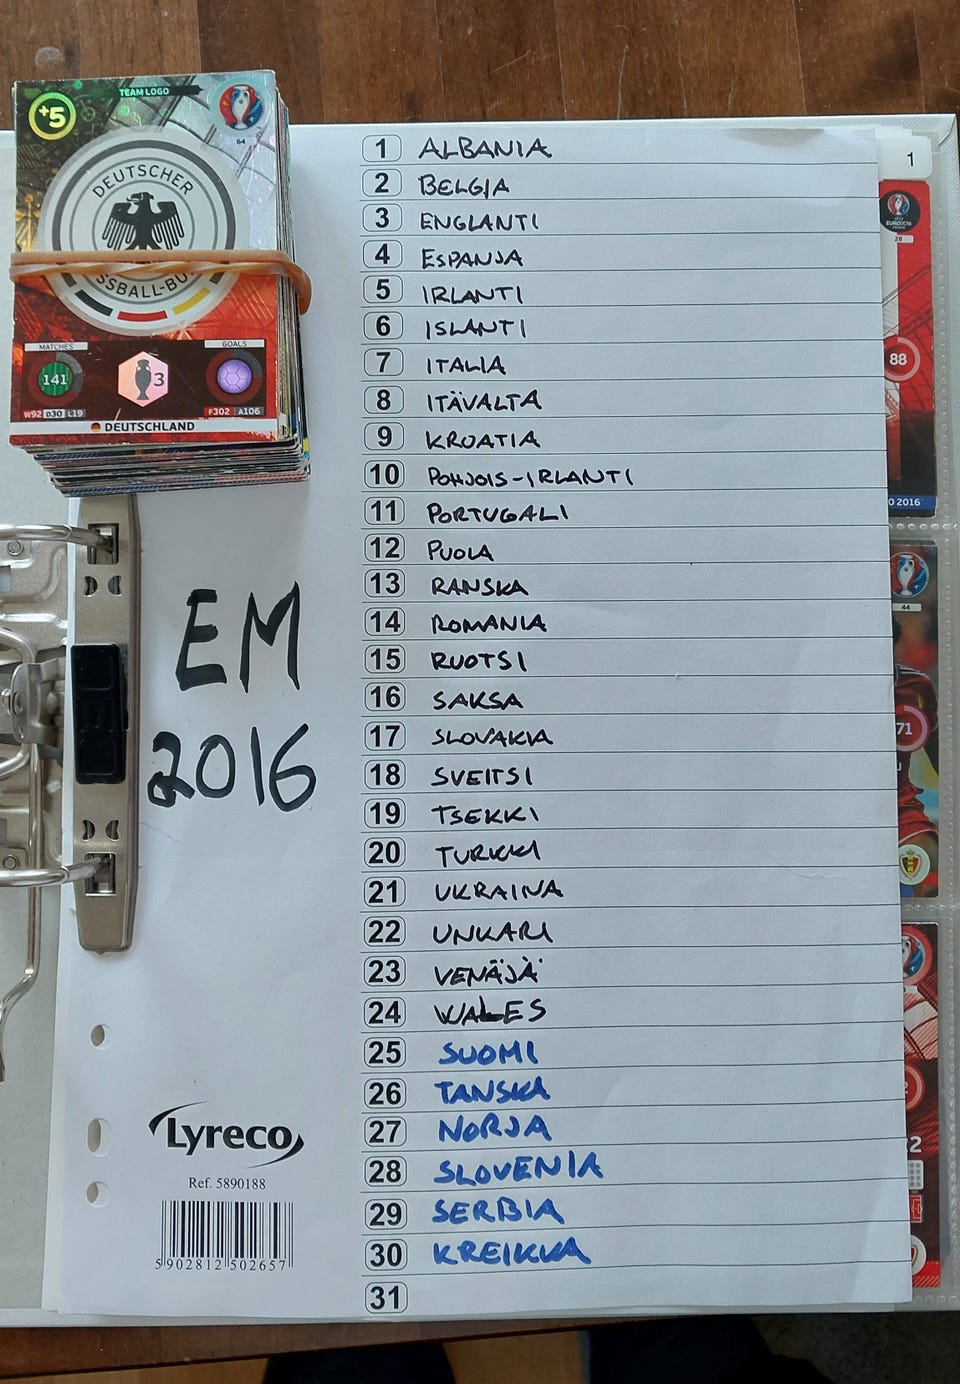 TEAM LOGO
+5
64
DEUTSCHER
SSBALL-BU
MATCHES
GOALS
141
3
W92 D30 L19
F302 A106
DEUTSCHLAND
EM
2016
Lyreco
Ref. 5890188
5 902812 502657
1 ALBANIA
2 BELGIA
3 ENGLANTI
4 ESPANJA
5 IRLANTI
6 ISLANTI
7 ITALIA
8 ITÄVALTA
9 KROATIA
10 POHJOIS-IRLANTI
11 PORTUGALI
12 PUOLA
13 RANSKA
14 ROMANIA
15 RUOTSI
16 SAKSA
17 SLOVAKIA
18 SVEITSI
19 TSEKKI
20 TURKKI
21 UKRAINA
22 UNKARI
23 VENÄJÄ
24 WALES
25 SUOMI
26 TANSKA
27 NORJA
28 SLOVENIA
29 SERBIA
30 KREIKKA
31
1
EURO2016
28
88
O 2016
44
71